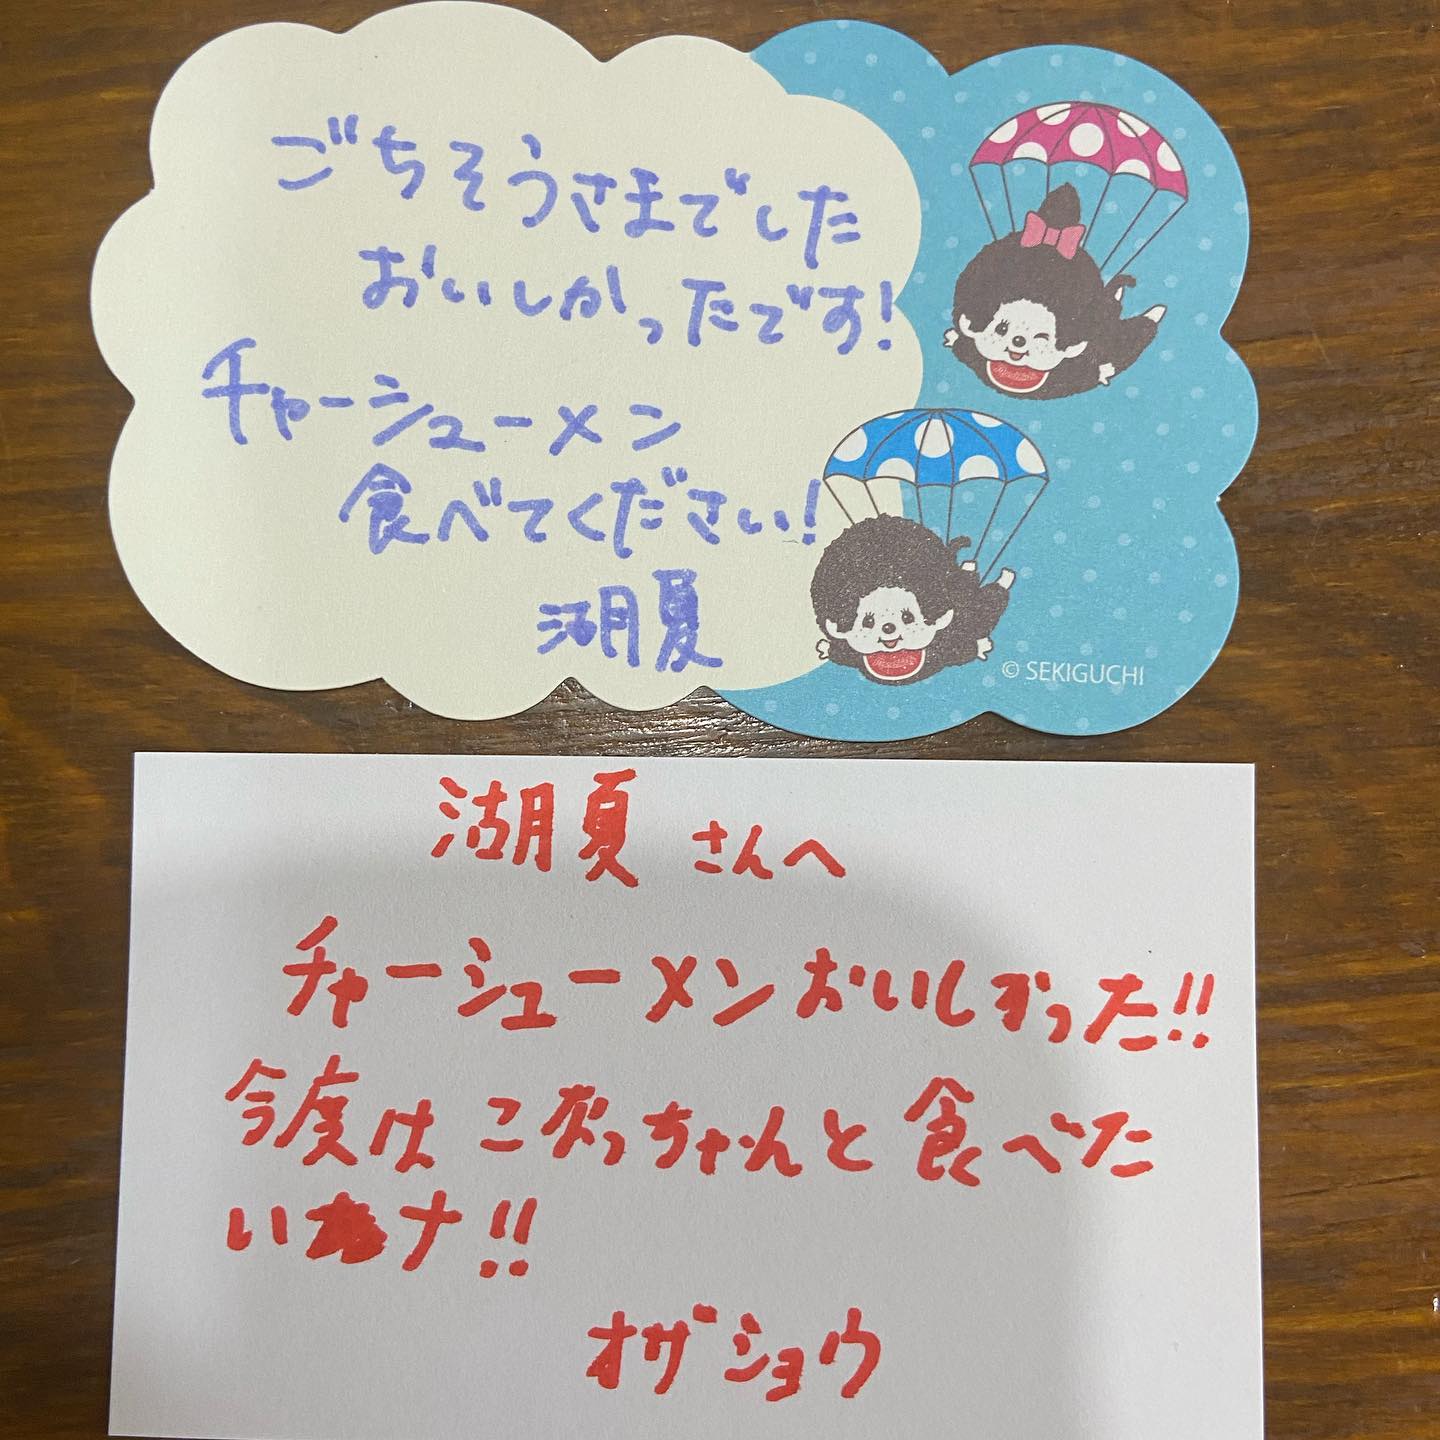 ごちそうさまでした
おいしかったです!
チャーシューメン
食べてください!
湖夏
© SEKIGUCHI
湖夏さんへ
チャーシューメンおいしかった!!
今度はこなっちゃんと食べた
いナ!!
オザショウ